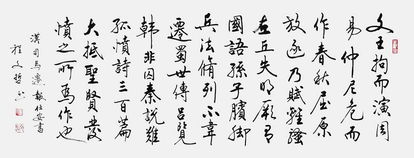 文王拘而演周
易仲尼厄而
作春秋屈原
放逐乃賦離騷
左丘失明厥有
國語孫子臏腳
兵法脩列不韋
遷蜀世傳呂覽
韓非囚秦說難
孤憤詩三百篇
大抵聖賢發
憤之所爲作也
漢司馬遷報任安書